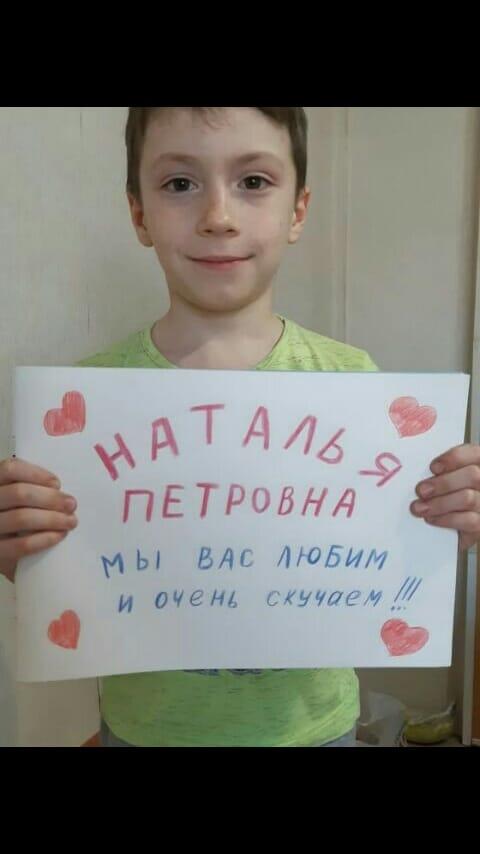 НАТАЛЬЯ
ПЕТРОВНА
МЫ ВАС ЛЮБИМ
и очень скучаем!!!